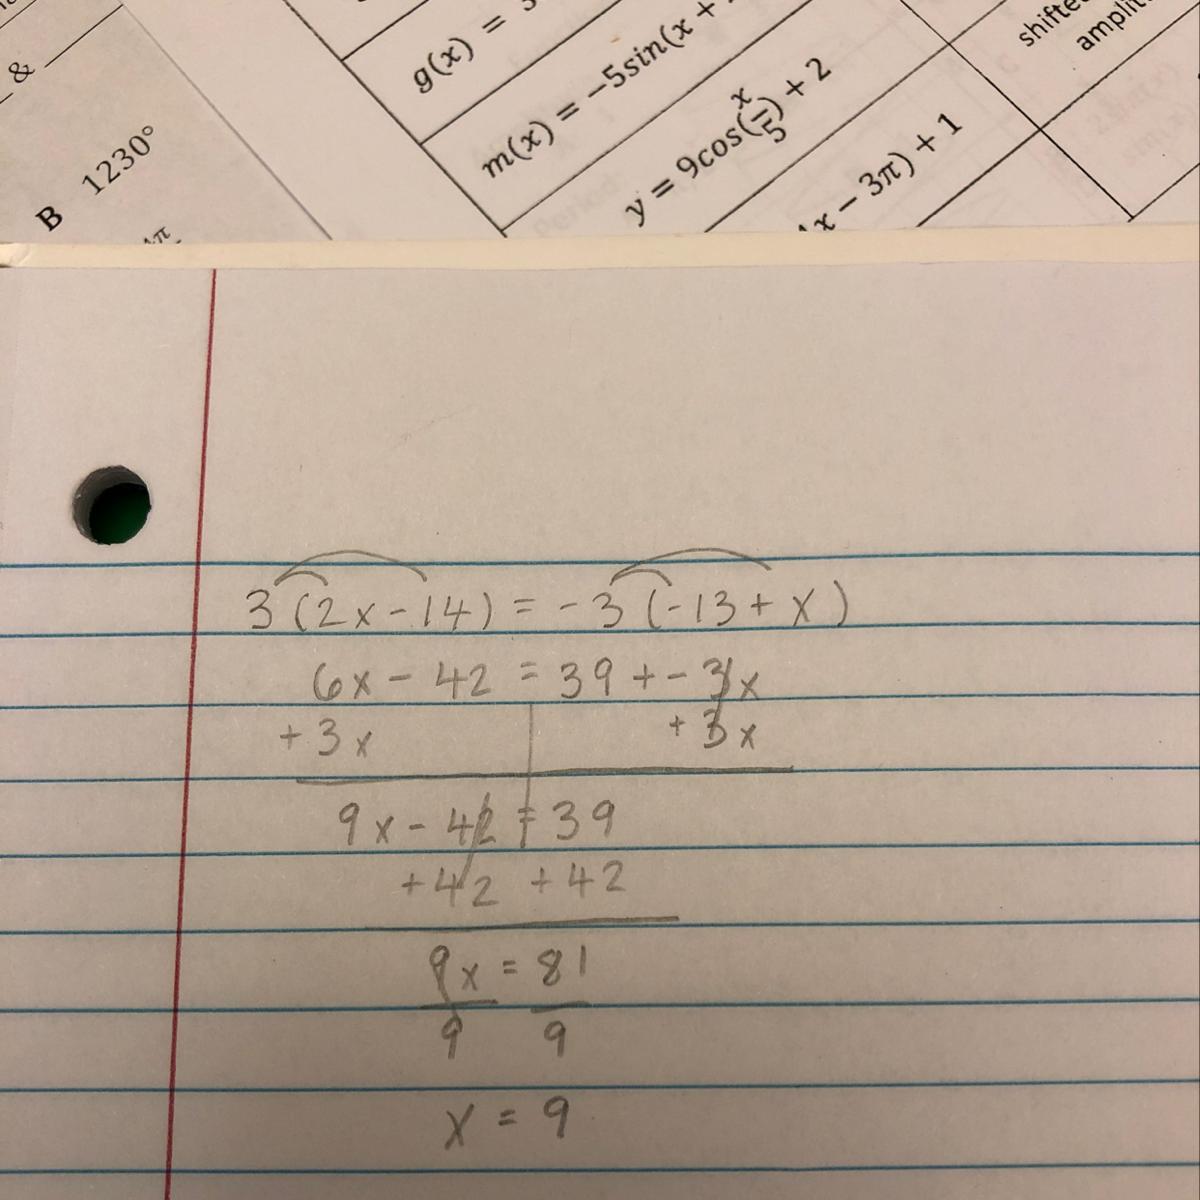 &
B 1230°
g(x) = 3
m(x) = -5sin(x +
y = 9cos(x/5) + 2
x - 3π) + 1
3(2x-14) = -3(-13+x)
6x - 42 = 39 + -3x
+3x +3x
9x - 42 = 39
+42 +42
9x = 81
9 9
x = 9